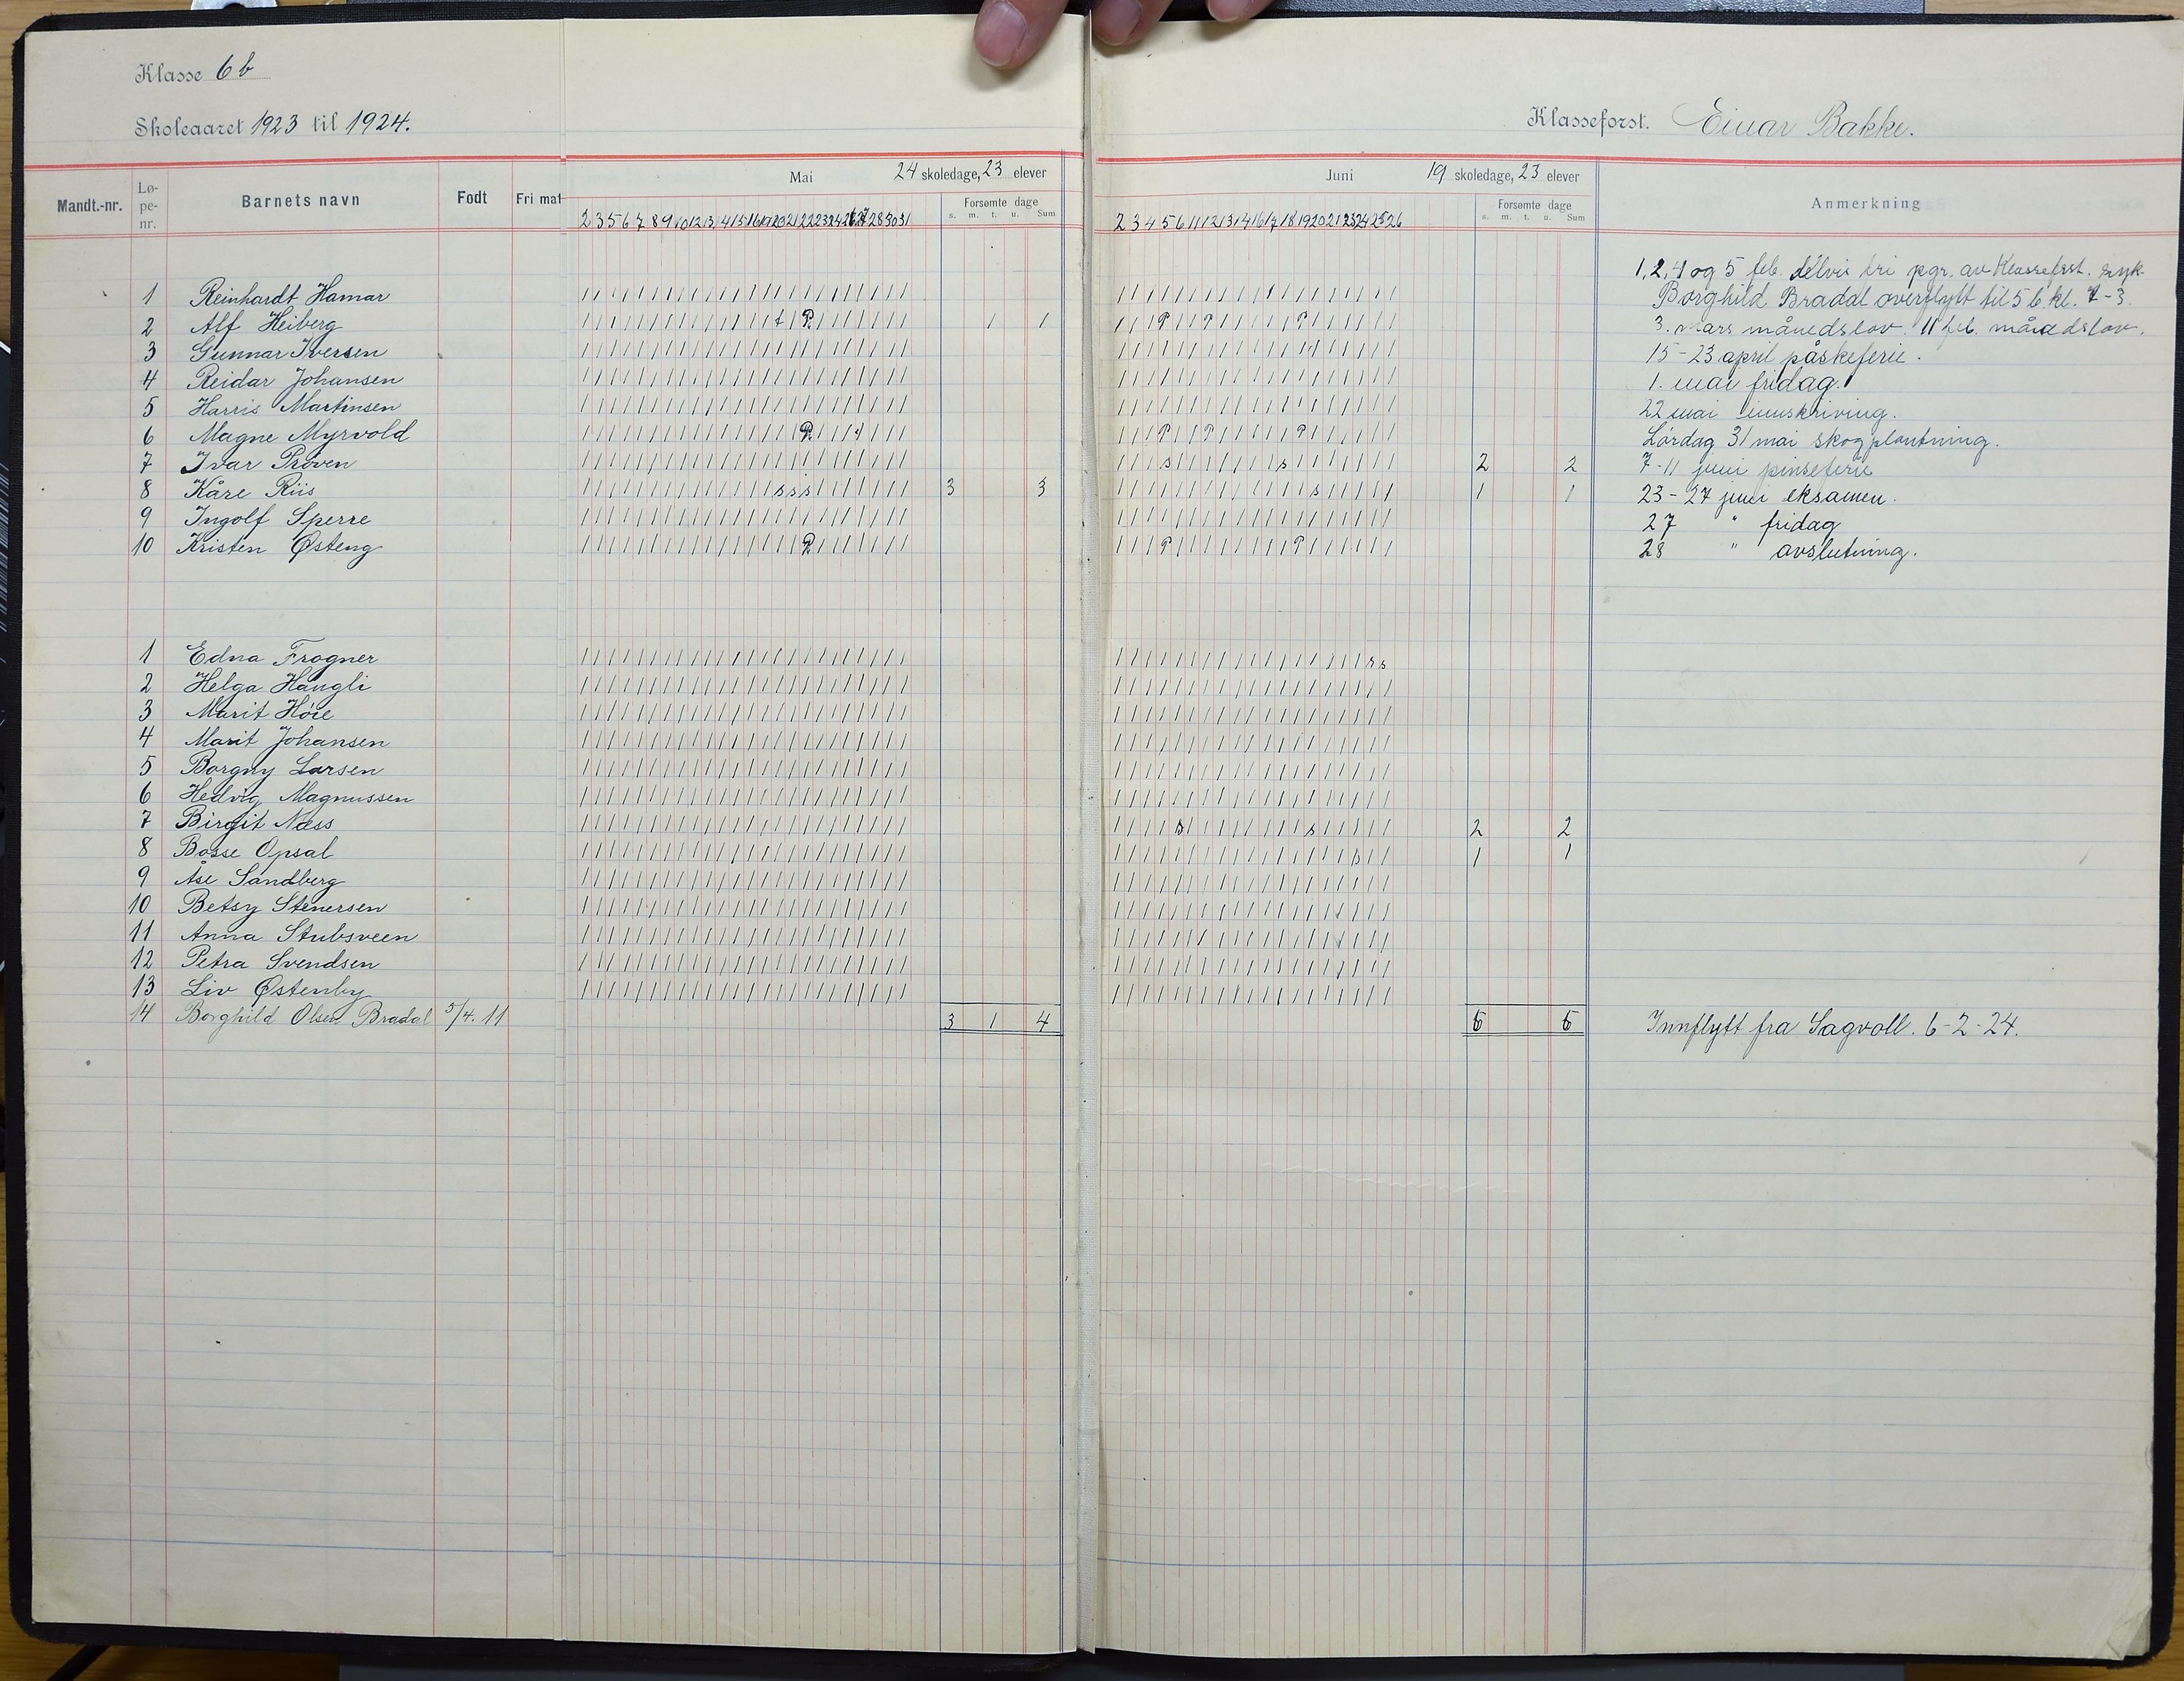 Klasse 6 b
Skoleaaret 1923 til 1924.
Klasseforst. Einar Bakke.
Mandt.-nr.
Lø-
pe-
nr.
Barnets navn
Født
Fri mat
Mai
24 skoledage, 23 elever
Forsømte dage
s. m. t. u. Sum
2 3 5 6 7 8 9 10 12 13 14 15 16 19 20 21 22 23 24 26 27 28 30 31
Juni
19 skoledage, 23 elever
Forsømte dage
s. m. t. u. Sum
2 3 4 5 6 11 12 13 14 16 17 18 19 20 21 23 24 25 26
Anmerkning
1 Reinhardt Hamar
2 Alf Heiberg 1 1
3 Gunnar Iversen
4 Reidar Johansen
5 Harris Martinsen
6 Magne Myrvold
7 Ivar Prøven 2 2
8 Kåre Riis 3 3 1 1
9 Ingolf Sperre
10 Kristen Østeng
1, 2, 4 og 5 feb. delvis fri pgr. av Klasseforst. syk.
Borghild Bradal overflytt til 5 b kl. 7-3.
3. mars månedslov. 11 feb. månedslov.
15-23 april påskeferie.
1. mai fridag.
22 mai innskriving.
Lørdag 31 mai skogplantning.
7-11 juni pinseferie
23-27 juni eksamen.
27 " fridag
28 " avslutning.
1 Edna Frogner
2 Helga Haugli
3 Marit Höie
4 Marit Johansen
5 Borgny Larsen
6 Hedvig Magnussen
7 Birgit Næss 2 2
8 Bosse Opsal 1 1
9 Åse Sandberg
10 Betsy Stenersen
11 Anna Stubsveen
12 Petra Svendsen
13 Liv Østenby
14 Borghild Olsen Bradal 5/4. 11
3 1 4
6 6
Innflytt fra Sagvoll. 6-2-24.